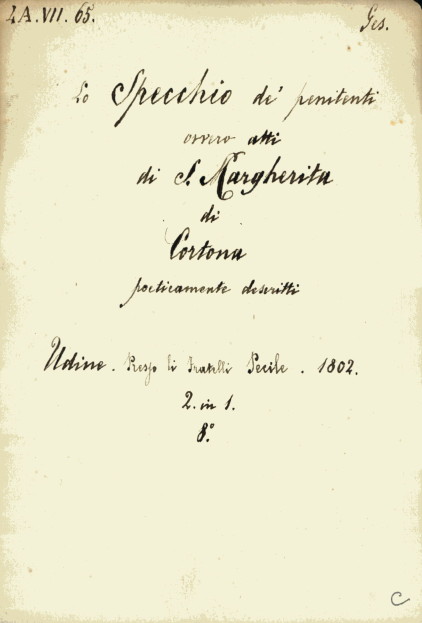 4A.VII.65.
Ges.
Lo Specchio de' penitenti
ovvero atti
di S. Margherita
di
Cortona
poeticamente descritti
Udine. Presso li Fratelli Pecile. 1802.
2. in 1.
8.°
C